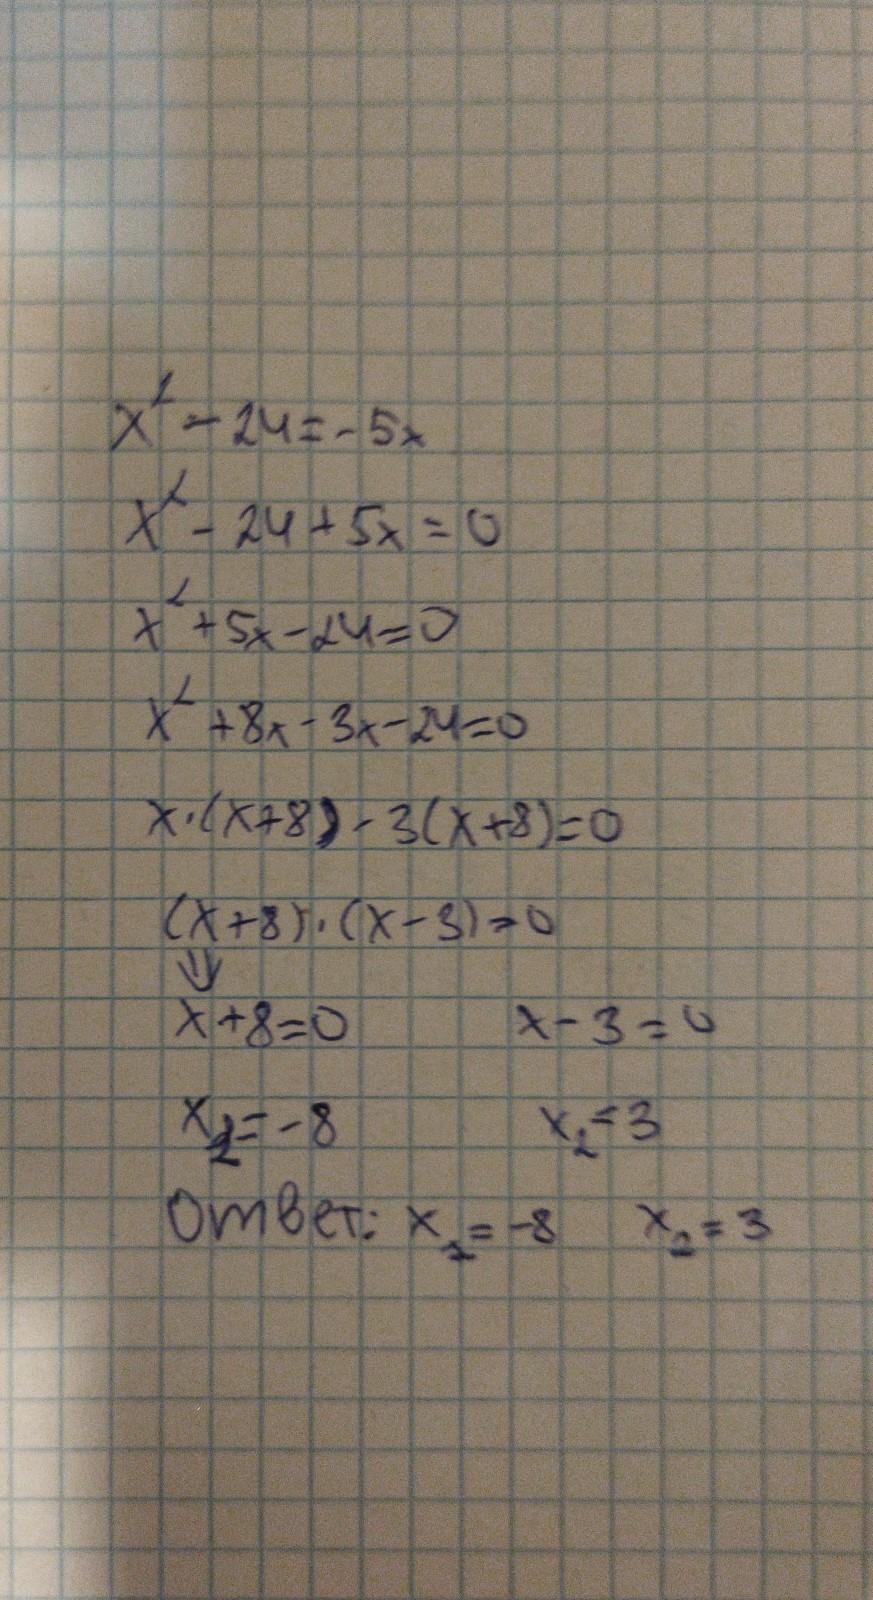 x² - 24 = - 5x
x² - 24 + 5x = 0
x² + 5x - 24 = 0
x² + 8x - 3x - 24 = 0
x · (x + 8) - 3(x + 8) = 0
(x + 8) · (x - 3) = 0
⇓
x + 8 = 0 x - 3 = 0
x₁ = - 8 x₂ = 3
Ответ: x₁ = -8 x₂ = 3